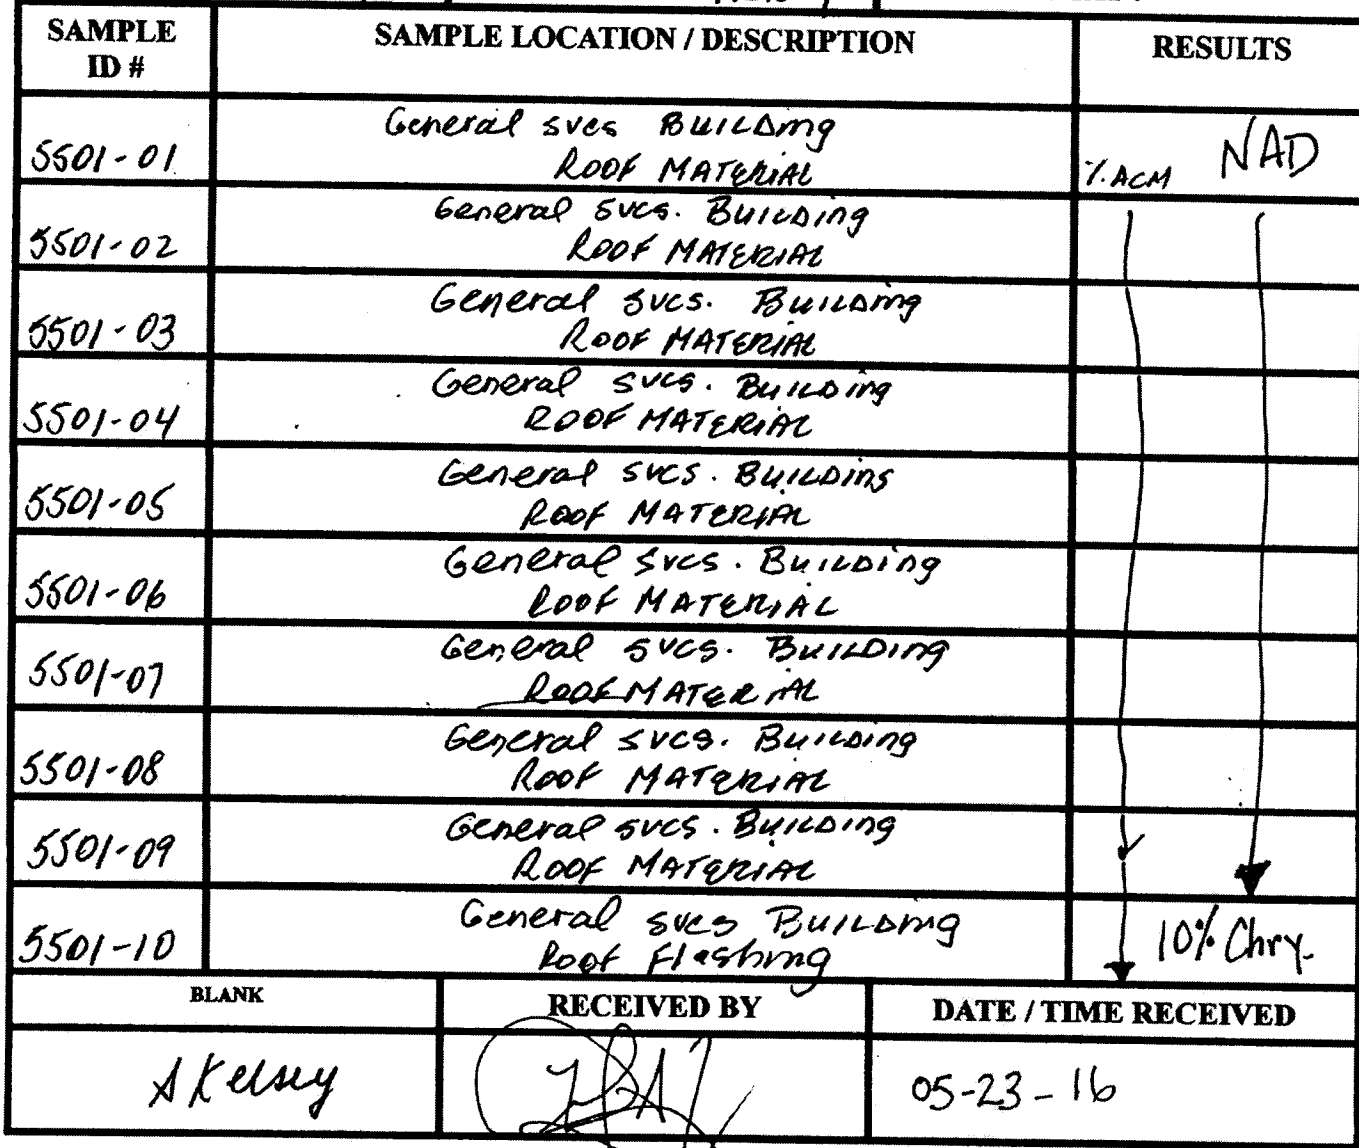 SAMPLE ID #
SAMPLE LOCATION / DESCRIPTION
RESULTS
5501-01
General svcs Building
Roof MATERIAL
% ACM
NAD
5501-02
General svcs. Building
ROOF MATERIAL
5501-03
General svcs. Building
Roof MATERIAL
5501-04
General svcs. Building
ROOF MATERIAL
5501-05
General svcs. Building
Roof MATERIAL
5501-06
General svcs. Building
Roof MATERIAL
5501-07
General svcs. Building
Roof MATERIAL
5501-08
General svcs. Building
Roof MATERIAL
5501-09
General svcs. Building
Roof MATERIAL
5501-10
General svcs Building
Roof Flashing
10% Chry.
BLANK
RECEIVED BY
DATE / TIME RECEIVED
A Kelsey
05-23-16